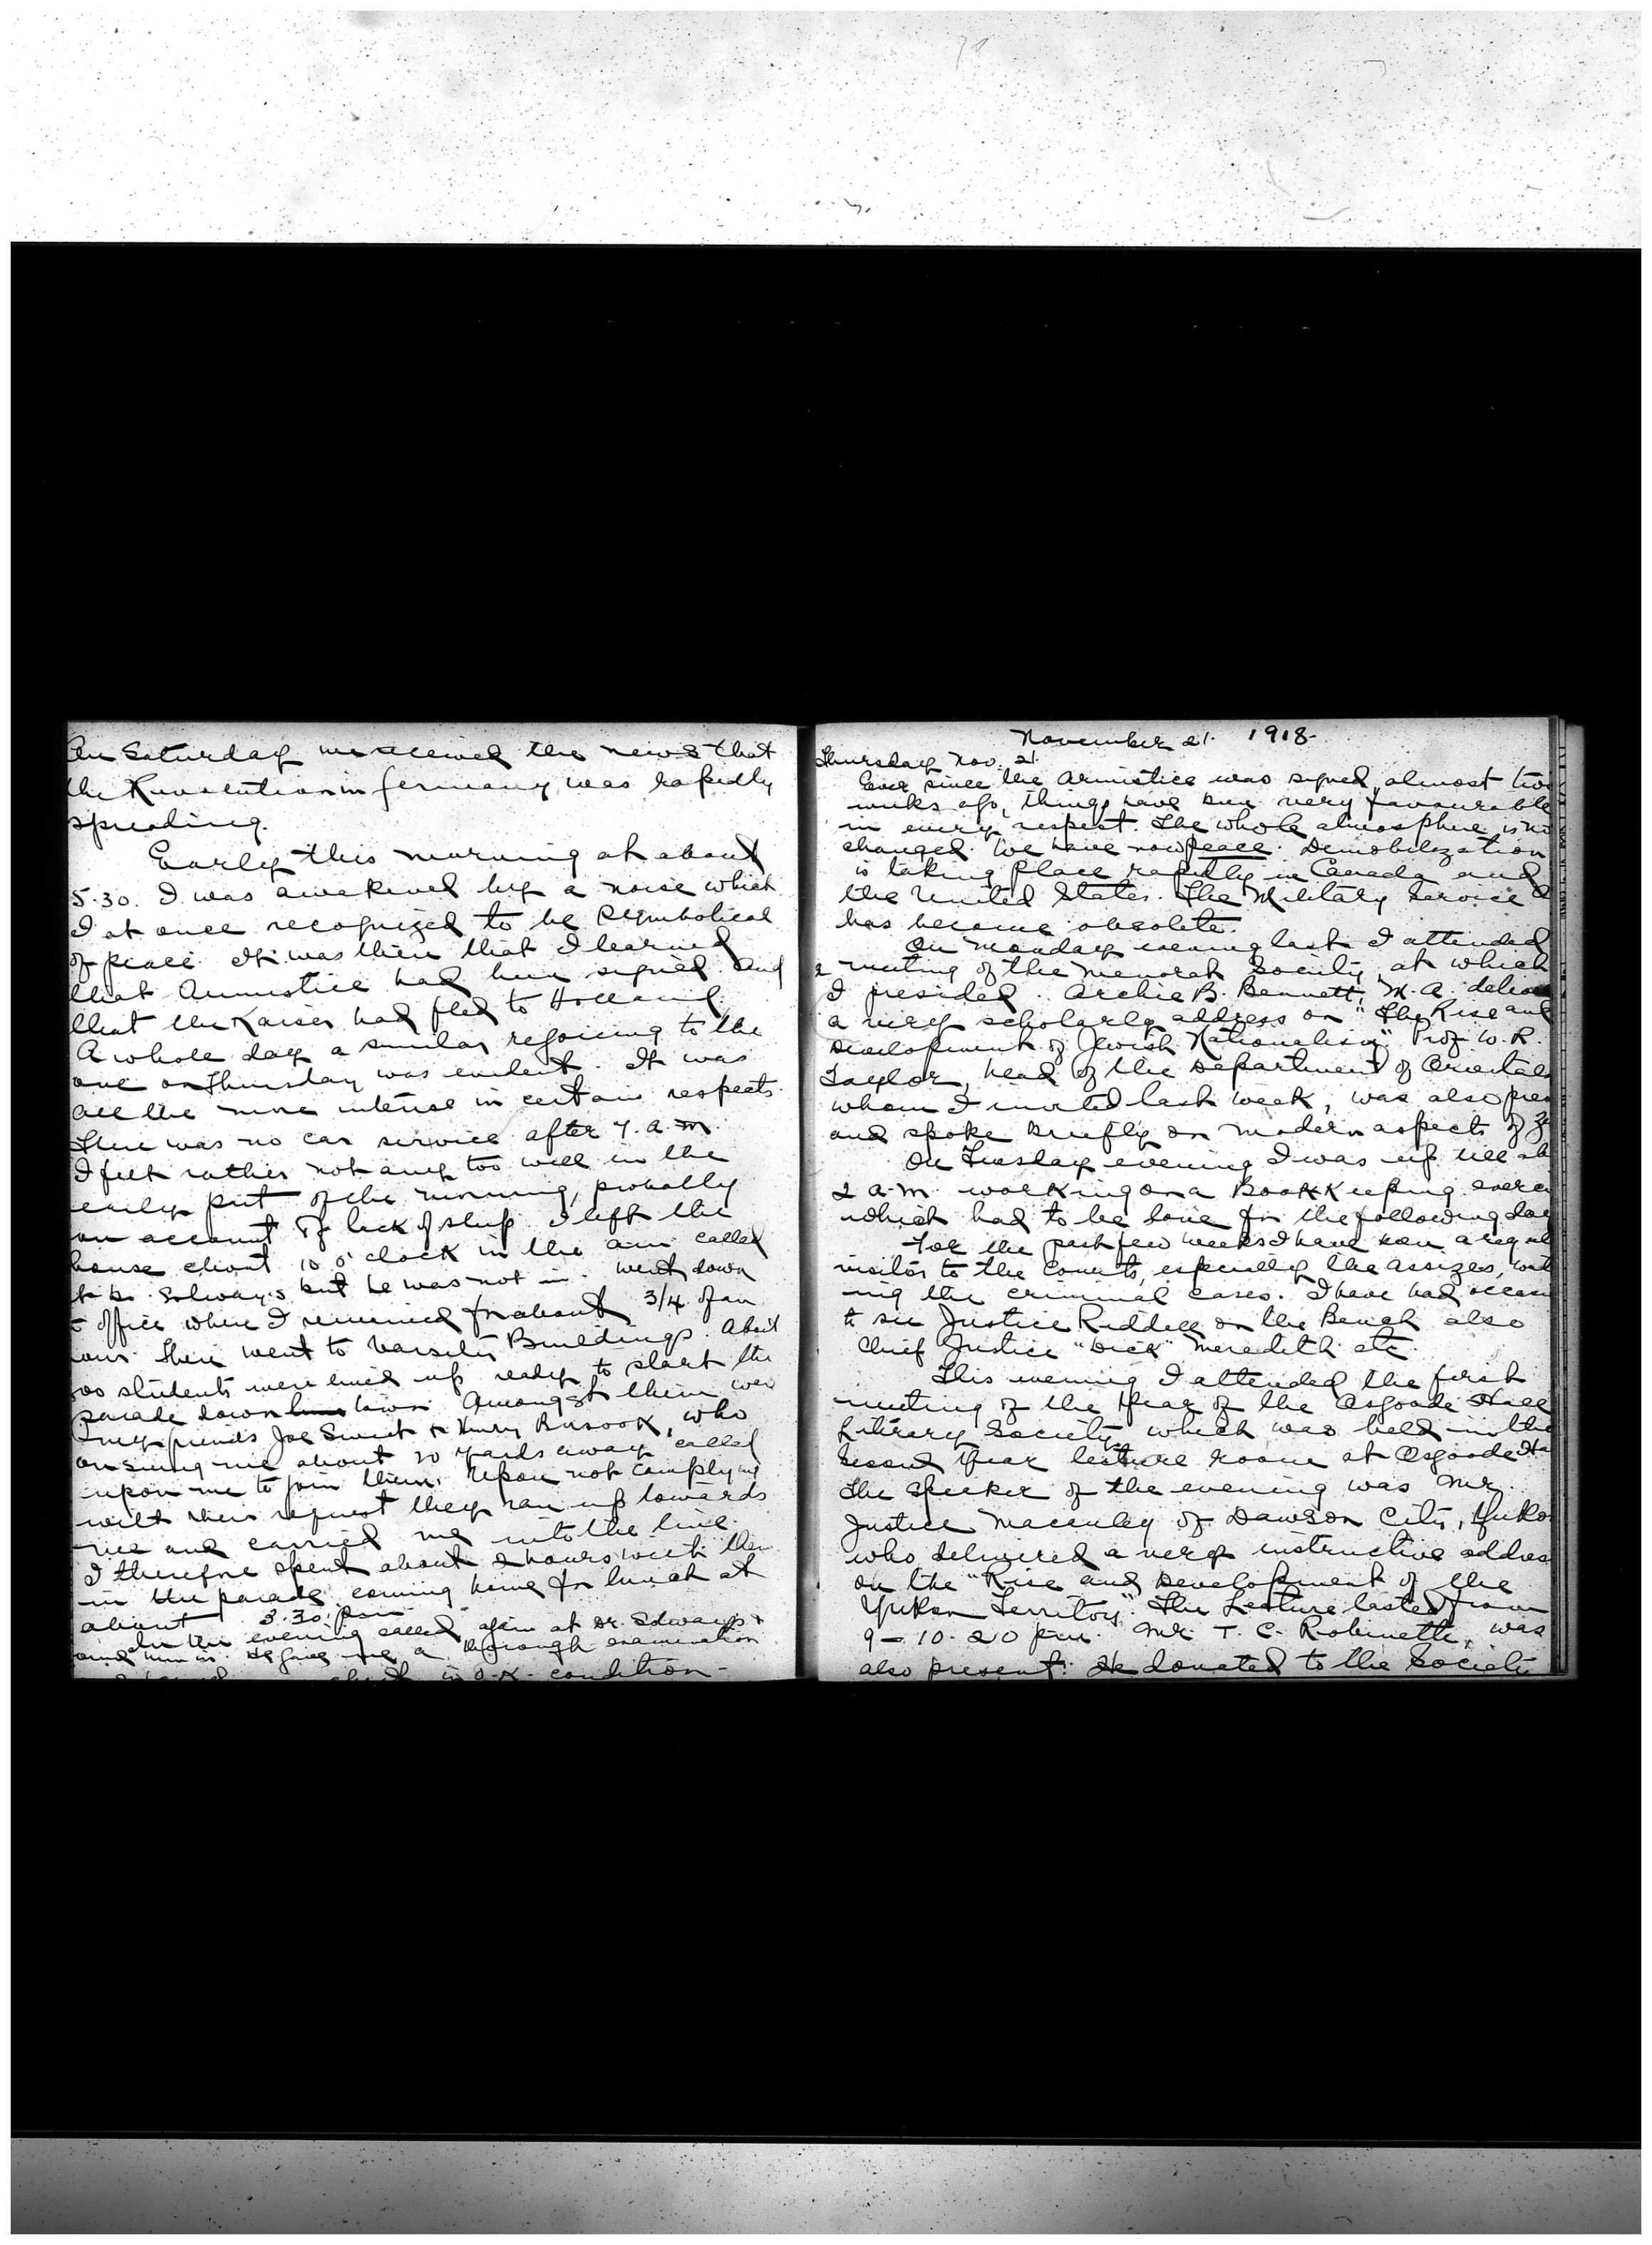 On Saturday we received the news that
the Revolution in Germany was rapidly
spreading.
Early this morning at about
5.30. I was awakened by a noise which
I at once recognized to be symbolical
of peace. It was then that I learned
that Armistice had been signed. and
that the Kaiser had fled to Holland.
A whole day a similar rejoicing to the
one on Thursday was evident. It was
all the more intense in certain respects.
There was no car service after 7. a.m.
I felt rather not any too well in the
early part of the morning, probably
on account of lack of sleep. I left the
house about 10 o'clock in the a.m. called
Solway's but he was not in. Went down
office where I remained for about 3/4 of an
our. Then went to Varsity Buildings. About
00 students were lined up ready to start the
parade down town. Amongst them were
my friends Joe Sweet & Henry Rusook, who
on seeing me about 20 yards away called
upon me to join them. Upon not complying
with their request they ran up towards
me and carried me into the line.
I therefore spent about 2 hours with them
in the parade coming home for lunch at
about 3.30. p.m
In the evening called again at Dr. Solway's &
him in. He gave me a thorough examination
in O.K. condition -
November 21. 1918.
Thursday Nov. 21.
Ever since the Armistice was signed, almost two
weeks ago, things have been very favourable
in every respect. The whole atmosphere is no
changed. We have now peace. Demobilization
is taking place rapidly in Canada and
the United States. The Military Service A
has become obsolete.
On Monday evening last I attended
a meeting of the Menorah Society, at which
I presided. Archie B. Bennett, M.A. deliv
a very scholarly address on "The Rise and
Development of Jewish Nationalism." Prof W. R.
Taylor, head of the Department of Orientals
whom I invited last week, was also pres
and spoke briefly on modern aspects of Z
On Tuesday evening I was up till ab
2 a.m. working on a Bookkeeping exerc
which had to be done for the following day
For the past few weeks I have been a regul
visitor to the Courts, especially the Assizes, wit
ing the criminal cases. I have had occasi
to see Justice Riddell on the Bench also
Chief Justice "Dick" Meredith etc.
This evening I attended the first
meeting of the year of the Osgoode Hall
Literary Society, which was held in the
second Year lecture room at Osgoode Ha
The speaker of the evening was Mr.
Justice Macaulay of Dawson City, Yuko
who delivered a very instructive addres
on the "Rise and Development of the
Yukon Territory." The Lecture lasted from
9 - 10.20 p.m. Mr. T. C. Robinette, was
also present. He donated to the Society